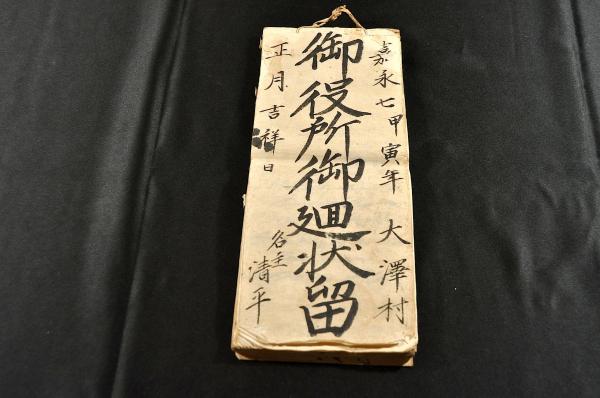 嘉永七甲寅年 大澤村
御役所御廻状留
正月吉祥日
名主 清平